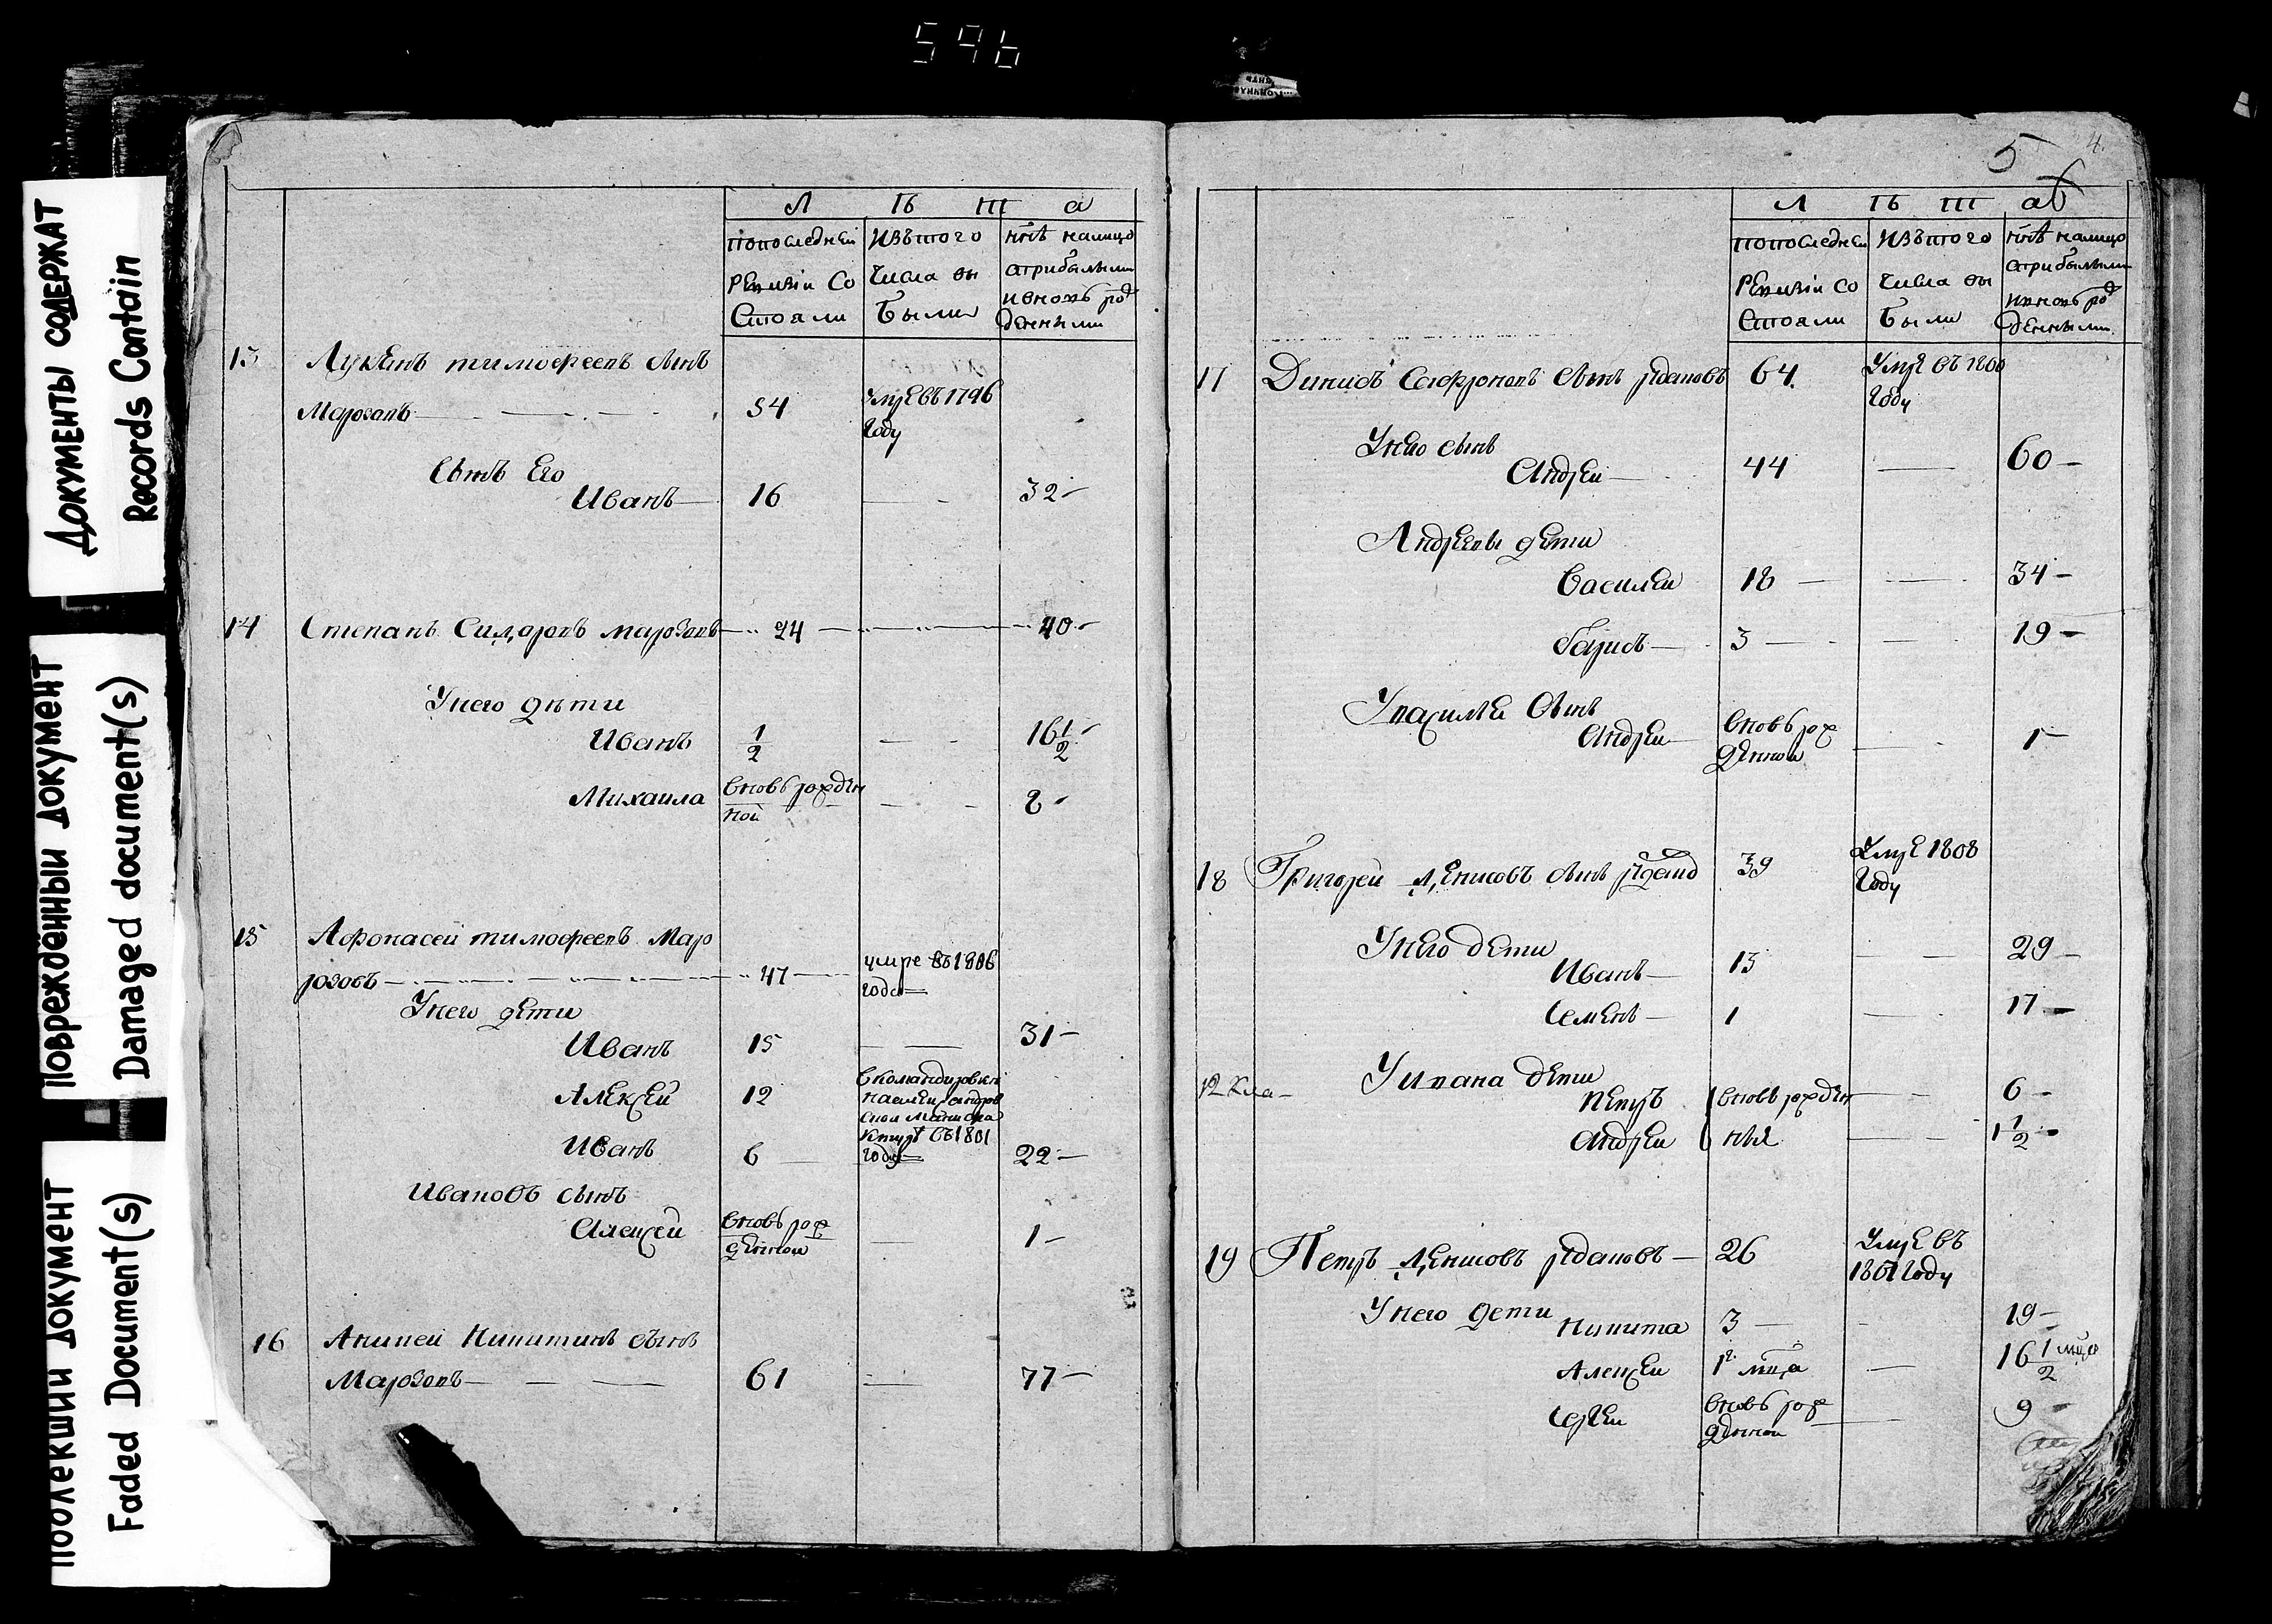 596
Документы содержат
Records Contain
Повреждённый документ
Damaged document(s)
Поблекший документ
Faded Document(s)
Л Ѣ Т а
попоследнеи
Ревизіи Со
Стояли
Изътого
Числа вы
были
ннѣ налицо
сприбылыми
ивновь рож
денными
13 Лукянъ тимофеевъ сынъ
Марозовъ 54 умре въ 1796
году
Сынъ Его
Иванъ 16 32
14 Степанъ Сидоровъ марозовъ 24 40
Унего дѣти
Иванъ 1/2 16 1/2
Михаила вновь рожден
ной 2
15 Афонасей тимофеевъ Мар
розовъ 47 умре въ 1806
года
Унего дети
Иванъ 15 31
Алексей 12 вкомандировки
Иванъ 6 въ 1801
году 22
Ивановъ сынъ
Алексей вновь рож
денной 1
16 Аникей Никитинъ сынъ
Марозовъ 61 77
5 4
6
Л Ѣ Т а
попоследнеи
Ревизіи Со
Стояли
Изътого
Числа вы
были
ннѣ налицо
сприбылыми
ивновь рож
денными
17 Динисъ Сафроновъ сынъ Ждановъ 64 Умре въ 1800
году
Унего сынъ
Андреи 44 60
Андреевы дети
Василеи 18 34
Барисъ 3 19
Увасилея Сынъ
Андреи вновь рож
денной 1
18 Григореи Денисовъ сынъ Ждано 39 Умре 1808
году
Унего дети
Иванъ 13 29
Семенъ 1 17
Уивана дети
Петръ вновь рожден 6
Андреи ныя 1 1/2
19 Петръ Денисовъ Ждановъ 26 Умре въ
1801 году
Унего дети
Никита 3 19
Алексеи 1 мца 16 1/2 мца
Сергеи вновь рож
денной 9